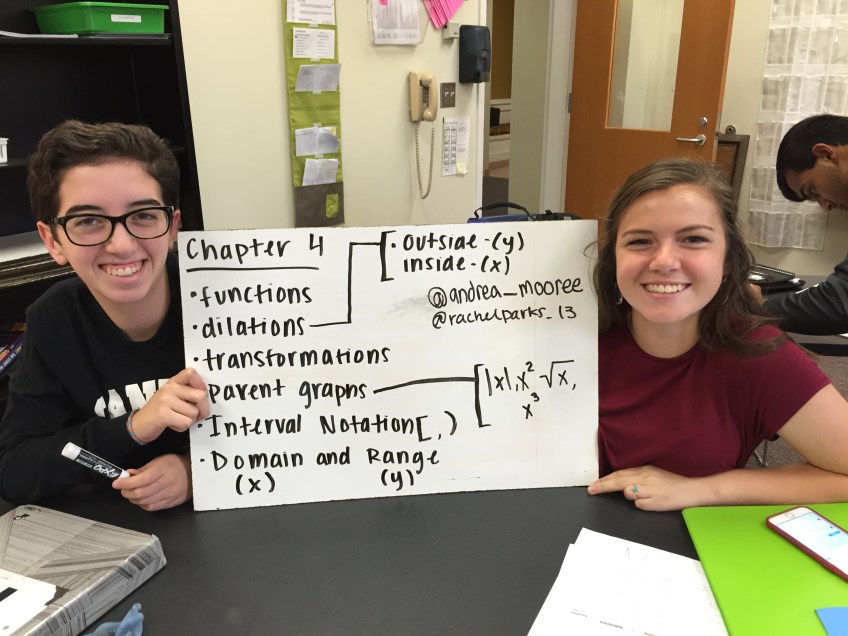 Chapter 4
• functions
• dilations
• transformations
• parent graphs
• Interval Notation [ , )
• Domain and Range
(x) (y)
• outside - (y)
inside - (x)
@andrea_mooree
@rachelparks_13
|x|, x², √x,
x³
EXPO